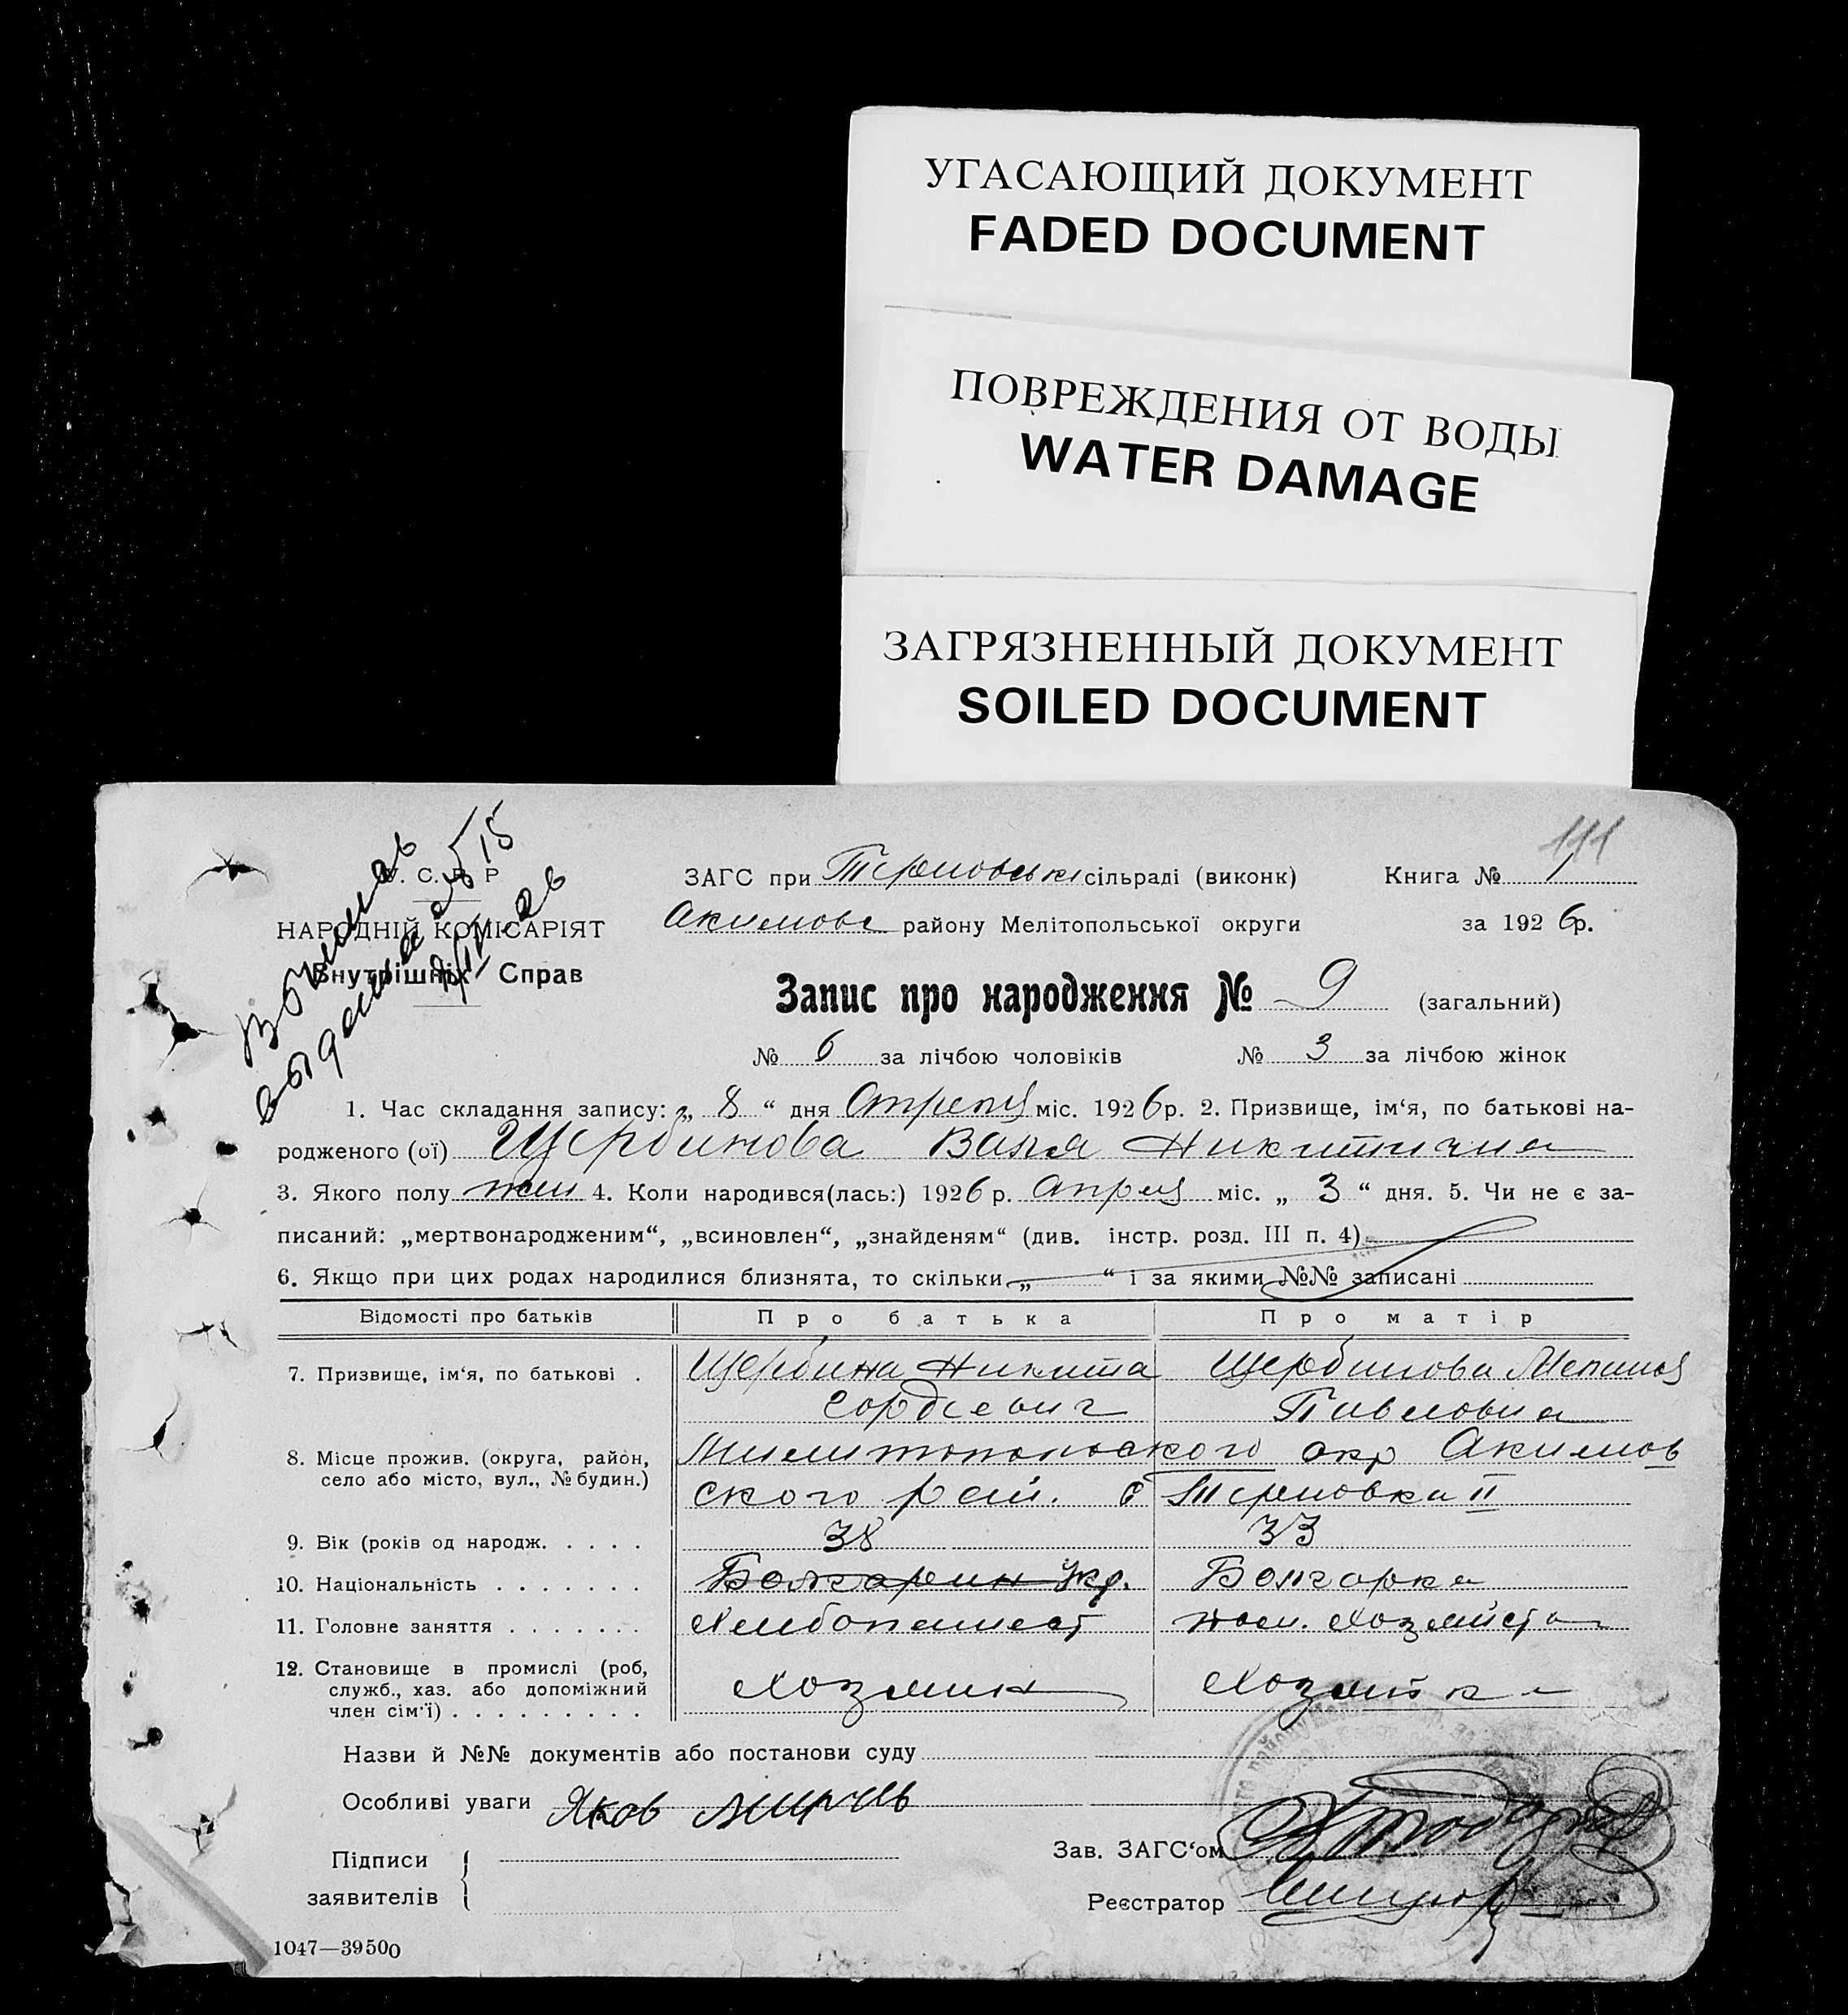 УГАСАЮЩИЙ ДОКУМЕНТ
FADED DOCUMENT
ПОВРЕЖДЕНИЯ ОТ ВОДЫ
WATER DAMAGE
ЗАГРЯЗНЕННЫЙ ДОКУМЕНТ
SOILED DOCUMENT
У. С. Р. Р
НАРОДНІЙ КОМІСАРІЯТ
Внутрішніх Справ
ЗАГС при Терновські сільраді (виконк) Книга № 1
Акимовс району Мелітопольської округи за 1926р.
Запис про народження № 9 (загальний)
№ 6 за лічбою чоловіків № 3 за лічбою жінок
1. Час складання запису: „ 8 “ дня Апреля міс. 1926р. 2. Призвище, ім‘я, по батькові на-
родженого (ої) Щербинова Валя Никитична
3. Якого полу жен 4. Коли народився(лась:) 1926 р. Апрель міс. „ 3 “ дня. 5. Чи не є за-
писаний: „мертвонародженим“, „всиновлен“, „знайденям“ (див. інстр. розд. III п. 4)
6. Якщо при цих родах народилися близнята, то скільки „ “ і за якими №№ записані
Відомості про батьків Про батька Про матір
7. Призвище, ім‘я, по батькові . Щербина Никита Щербинова
Гордеевич Павловна
8. Місце прожив. (округа, район, Милитопольского окр Акимов
село або місто, вул., № будин.) ского рай. с Терновка II
9. Вік (років од народж. . . . . 38 33
10. Національність . . . . . . . Болгарин Укр. Болгарка
11. Головне заняття . . . . . . . Хлебопашест дом. Хозяйста
12. Становище в промислі (роб,
служб., хаз. або допоміжний Хозяин Хозяйка
член сім‘ї) . . . . . . . . .
Назви й №№ документів або постанови суду
Особливі уваги Яков
Підписи Зав. ЗАГС‘ом
заявителів Реєстратор
1047—39500